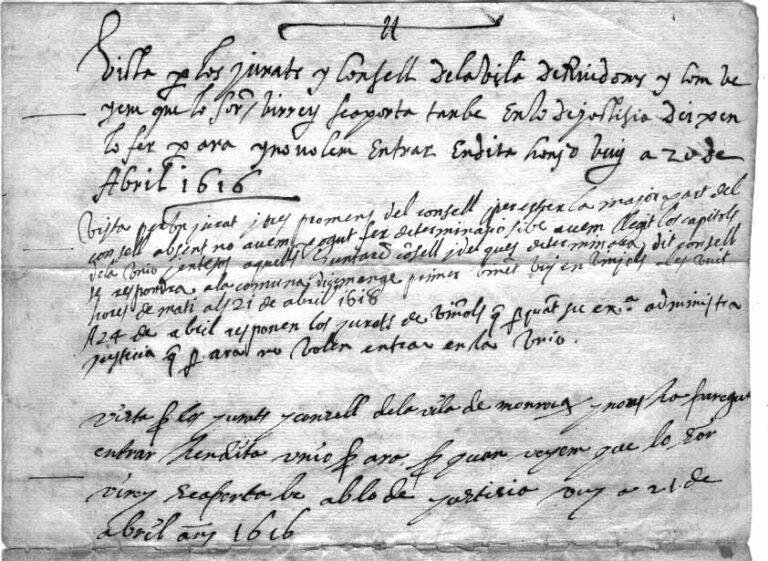 Vista p los jurats y Consell dela vila de Riudoms y com ve
yem que lo sor virrey se aporta tanbe en lo de jostisia deixen
lo fer p ara y no volem entrar en dita honio vuy a 20 de
Abril 1616
Vista per lo jurat y tres promens del consell y per esser la major part del
consell absent no avem pogut fer determinatio si be avem llegit los capitols
dela Unio y entesos aquells juntarem cosell y del que es determinara dit consell
se respondra a la comuna diumenge primer vinet vuy en Vinyols a les vuit
hores de mati als 21 de abril 1616
A 24 de abril responen los jurats de Viñols q p quat su exa administra
justicia q p ara no volen entrar en la Unio.
vista p los jurats y consell dela vila de monroig y nons ha paregut
entrar en dita unio p ara p quan veyem que lo sor
virey se aporta be ab lo de justisia vuy a 21 de
abril any 1616